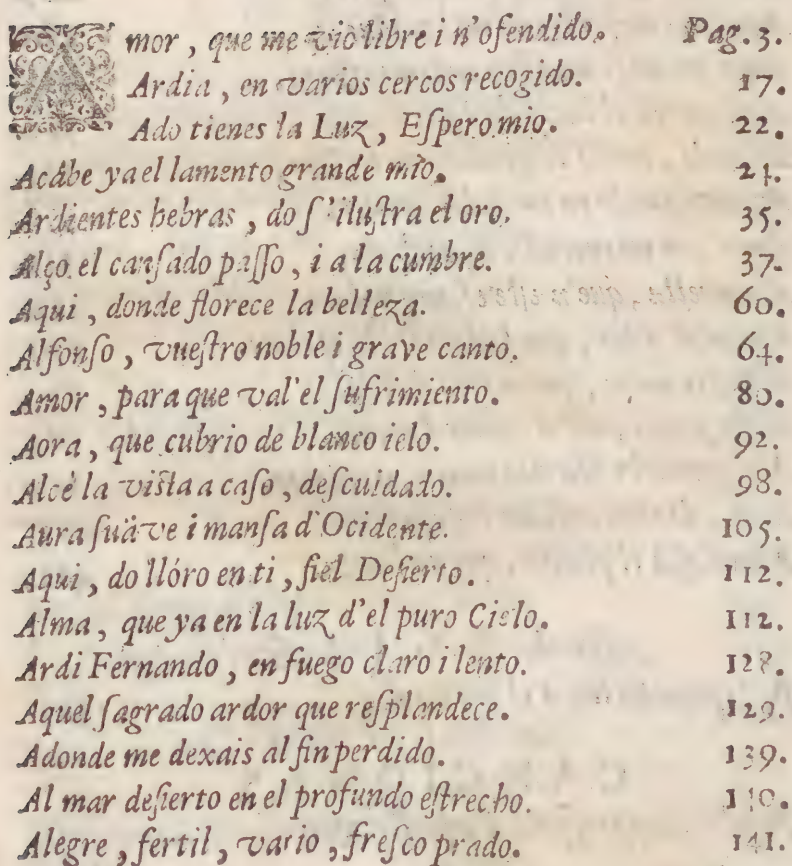 Amor, que me vio libre i n'ofendido. Pag. 3.
Ardia, en varios cercos recogido. 17.
Ado tienes la Luz, Eſpero mio. 22.
Acábe ya el lamento grande mio. 24.
Ardientes hebras, do ſ'iluſtra el oro. 35.
Alço el canſado paſſo, i a la cumbre. 37.
Aqui, donde florece la belleza. 60.
Alfonſo, vueſtro noble i grave canto. 64.
Amor, para que val'el ſufrimiento. 80.
Aora, que cubrio de blanco ielo. 92.
Alcè la viſta a caſo, deſcuidado. 98.
Aura ſuäve i manſa d'Ocidente. 105.
Aqui, do llóro en ti, fiel Deſierto. 112.
Alma, que ya en la luz d'el puro Cielo. 112.
Ardi Fernando, en fuego claro i lento. 128.
Aquel ſagrado ardor que reſplandece. 129.
Adonde me dexais al fin perdido. 139.
Al mar deſierto en el profundo eſtrecho. 140.
Alegre, fertil, vario, freſco prado. 141.